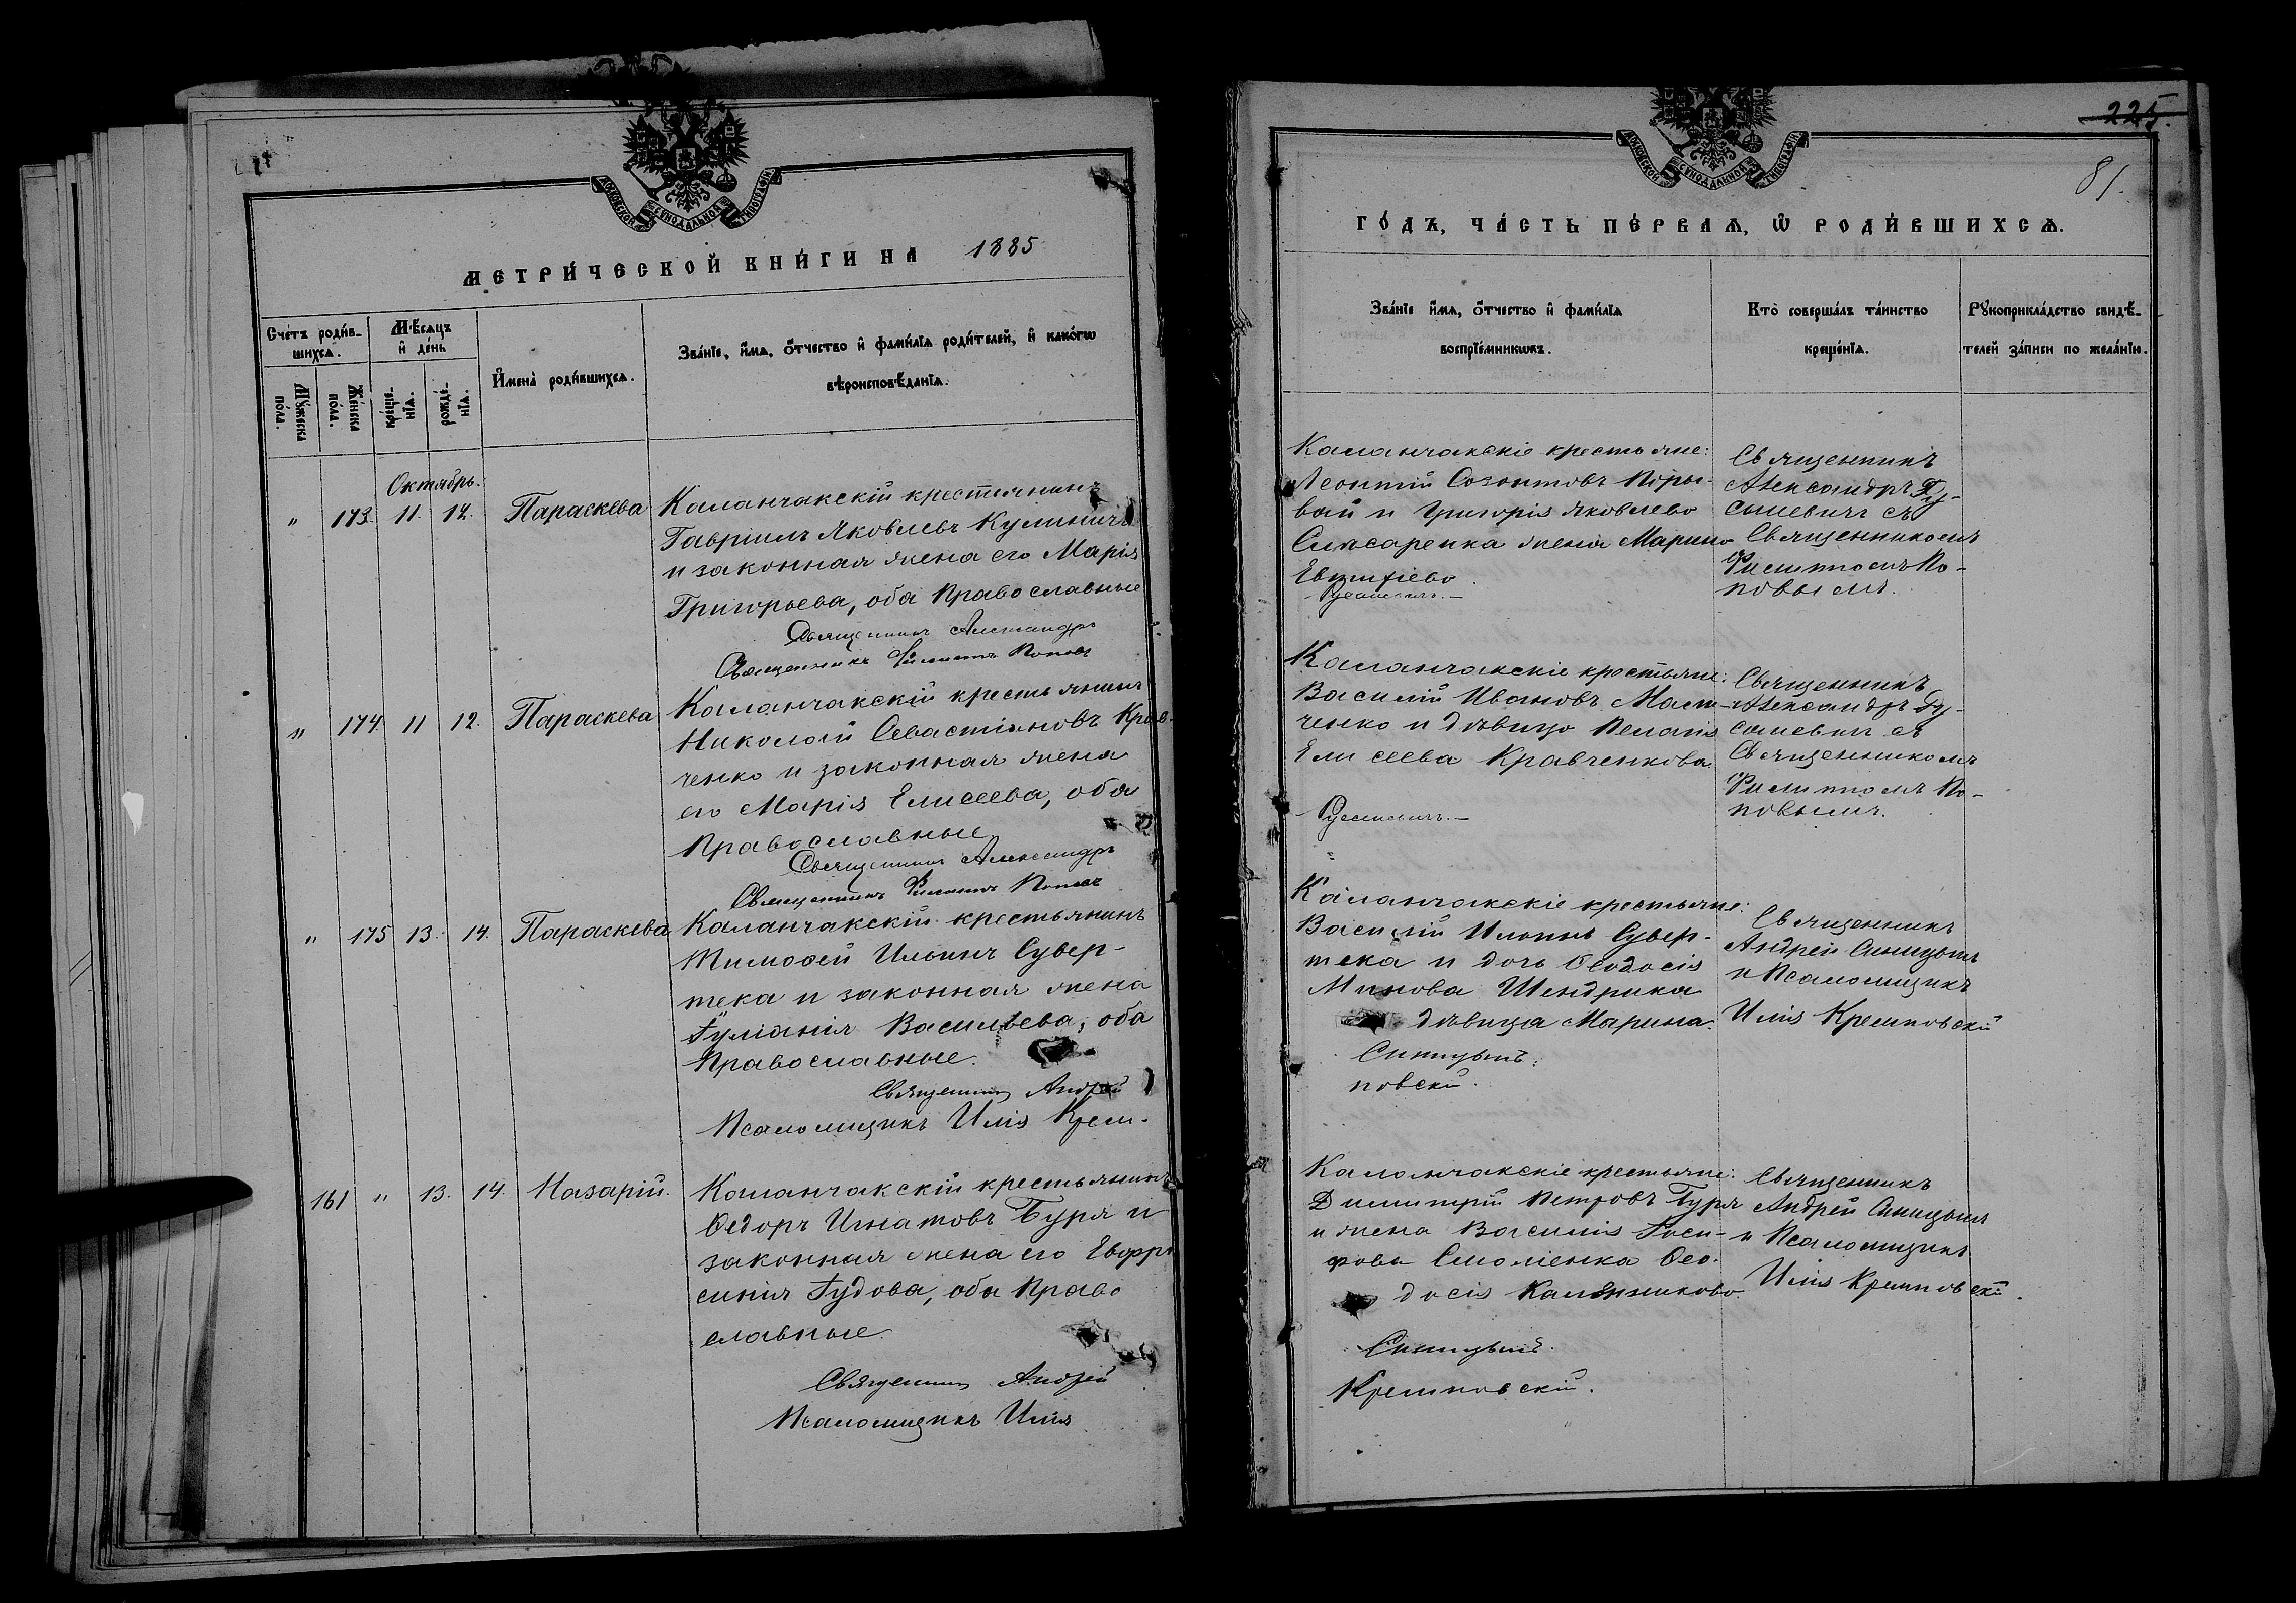 МОСКОВСКОЙ СѴНОДАЛЬНОЙ ТИПОГРАФІИ
МЕТРИ́ЧЕСКОЙ КНИ́ГИ НА 1885
Сче́тъ роди́в-
шихсѧ.
Мѣ́сяцъ
и҆ де́нь
И҆мена̀ роди́вшихсѧ.
Зва́нїе, и҆́мѧ, ѻ҆́тчество и҆ фами́лїѧ роди́телей, и҆ како́гѡ
вѣроисповѣ́данїѧ.
Мꙋ́жеска
по́ла.
Же́нска
по́ла.
креще́-
нїѧ.
рожде́-
нїѧ.
Октябрь.
" 173. 11. 12. Параскева
Каланчакскій крестьянинъ
Гавріилъ Яковлевъ Кулиничъ
и законная жена его Марія
Григорьева, оба Православные
Священникъ Александръ
Священникъ Филиппъ Поповъ
" 174 11 12. Параскева
Каланчакскій крестьянинъ
Николай Севастіановъ Крав-
ченко и законная жена
его Марія Елисеева, оба
Православные
Священникъ Александръ
Священникъ Филиппъ Поповъ
" 175 13. 14. Параскева
Каланчакскій крестьянинъ
Тимофей Ильинъ Сувер-
тека и законная жена
Іуліанія Васильева, оба
Православные.
Священникъ Андрей
Псаломщикъ Илія Крем-
161 " 13. 14. Назарій.
Каланчакскій крестьянинъ
Ѳедоръ Игнатовъ Буря и
законная жена его Евфро
синія Іудова, оба Право
славные.
Священникъ Андрей
Псаломщикъ Илія
225.
81.
МОСКОВСКОЙ СѴНОДАЛЬНОЙ ТИПОГРАФІИ
ГО́ДЪ, ЧА́СТЬ ПЕ́РВАѦ, Ѡ҆ РОДИ́ВШИХСѦ.
Зва́нїе и҆́мѧ, ѻ҆́тчество и҆ фами́лїѧ
воспрїе́мникѡвъ.
Кто̀ соверша́лъ та́инство
креще́нїѧ.
Рꙋкоприкла́дство свидѣ́-
телей за́писи по жела́нїю.
Каланчакскіе крестьяне:
Леонтій Созонтовъ Поры-
вай и Григорія Яковлево
Слюсаренка жена Марина
Русаневичъ.—
Священникъ
Александръ Ру-
саневичъ съ
Священникомъ
Филиппомъ По-
повымъ.
Каланчакскіе крестьяне:
Василій Ивановъ
ченко и дѣвица Пелагія
Елисеева Кравченкова.
Русаневичъ.—
Священникъ
Александръ Ру-
саневичъ съ
Священникомъ
Филиппомъ По-
повымъ.
Каланчакскіе крестьяне:
Василій Ильинъ Сувер-
тека и дочь Ѳеодосія
Минова Шендрика
дѣвица Марина.
Синицынъ.
повскій.
Священникъ
Андрей Синицынъ
и Псаломщикъ
Илія Кремповскій
Каланчакскіе крестьяне:
Димитрій Петровъ Буря
и жена Василія Іоси-
фова Смоленка Ѳео-
досія
Синицынъ.
Кремповскій.
Священникъ
Андрей Синицынъ
и Псаломщикъ
Илія Кремповскій.